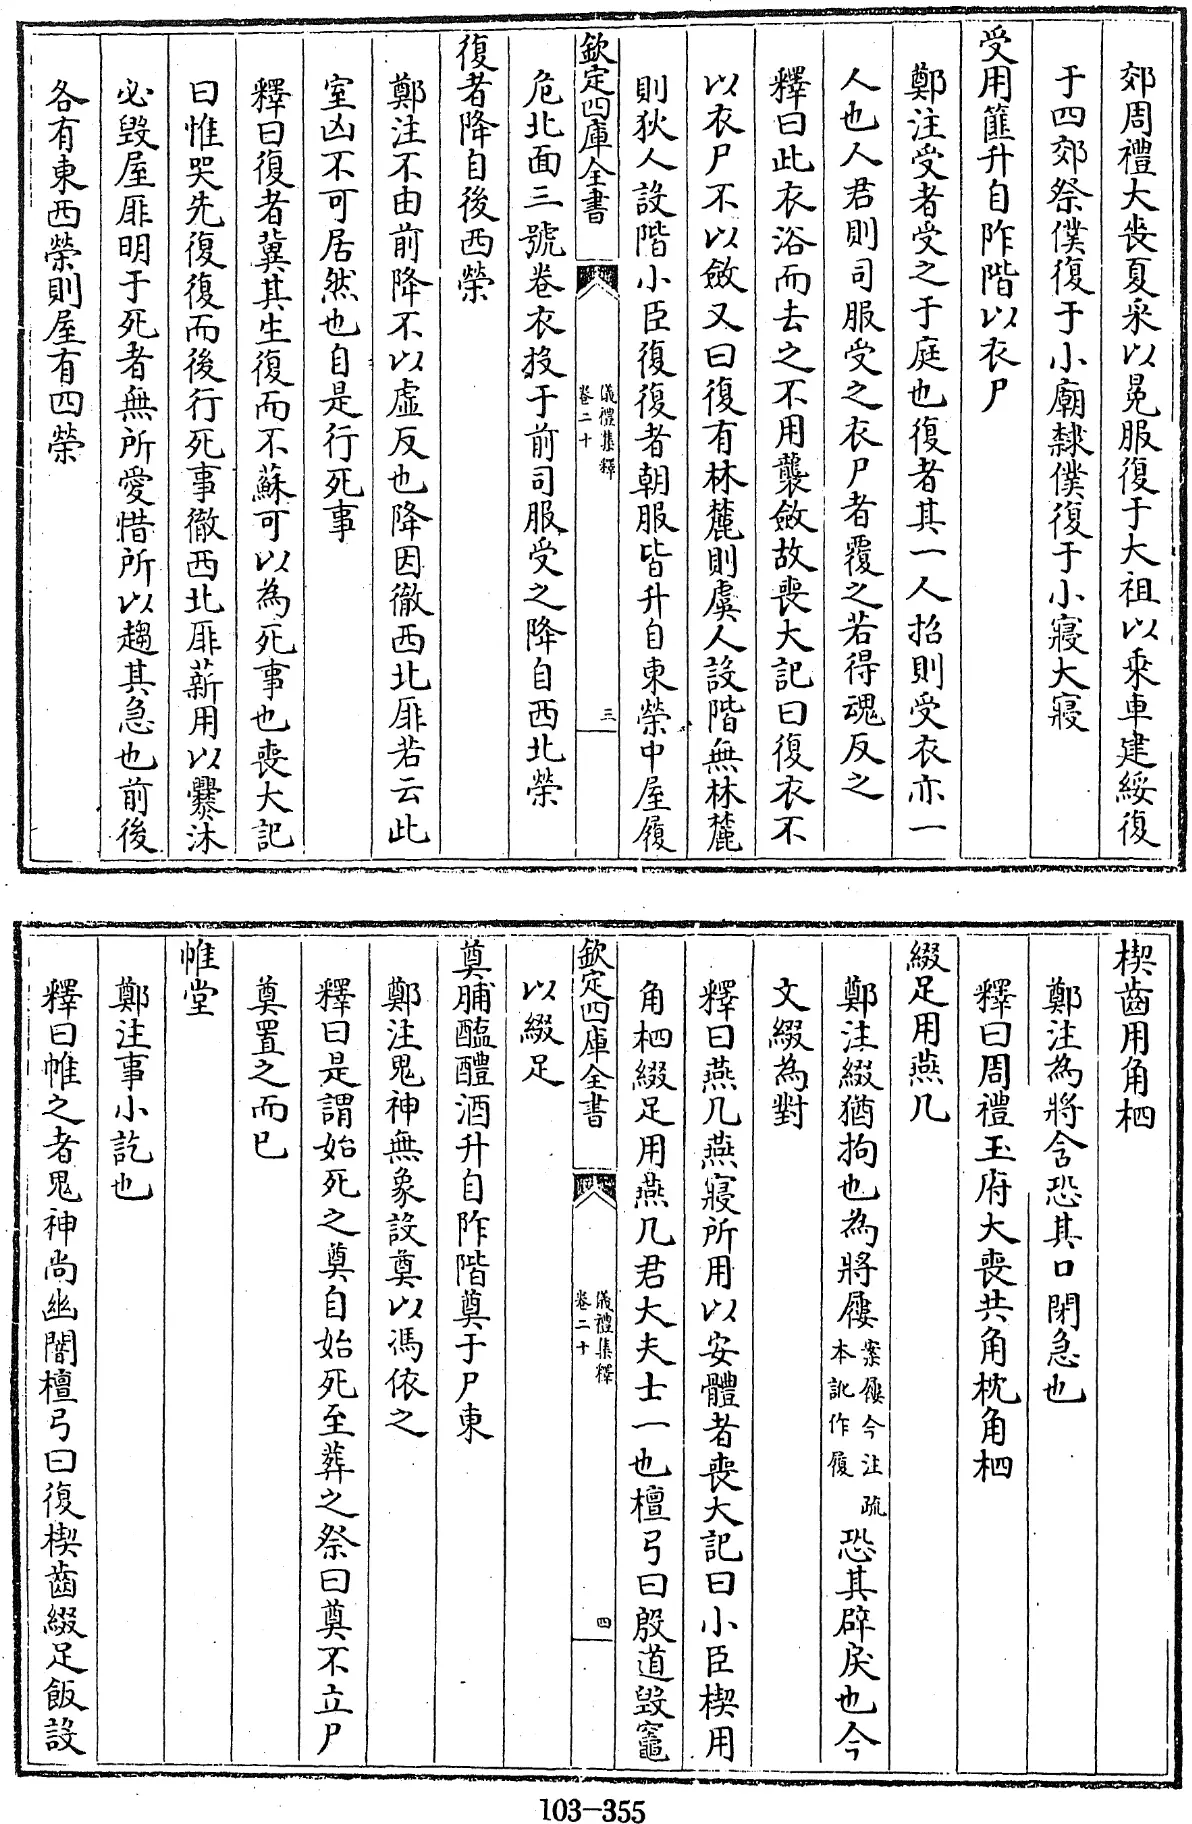 郊周禮大喪夏采以冕服復于大祖以乘車建綏復
于四郊祭僕復于小廟隸僕復于小寢大寢
受用篚升自阼階以衣尸
鄭注受者受之于庭也復者其一人招則受衣亦一
人也人君則司服受之衣尸者覆之若得魂反之
釋曰此衣浴而去之不用襲斂故喪大記曰復衣不
以衣尸不以斂又曰復有林麓則虞人設階無林麓
則狄人設階小臣復復者朝服皆升自東榮中屋履
欽定四庫全書
儀禮集釋
卷二十
三
危北面三號卷衣投于前司服受之降自西北榮
復者降自後西榮
鄭注不由前降不以虛反也降因徹西北厞若云此
室凶不可居然也自是行死事
釋曰復者冀其生復而不蘇可以為死事也喪大記
曰惟哭先復復而後行死事徹西北厞薪用以爨沐
必毀屋厞明于死者無所愛惜所以趨其急也前後
各有東西榮則屋有四榮
楔齒用角柶
鄭注為將含恐其口閉急也
釋曰周禮玉府大喪共角枕角柶
綴足用燕几
鄭注綴猶拘也為將屨案屨今注疏本訛作履恐其辟戾也今
文綴為對
釋曰燕几燕寢所用以安體者喪大記曰小臣楔用
角柶綴足用燕几君大夫士一也檀弓曰殷道毀竈
欽定四庫全書
儀禮集釋
卷二十
四
以綴足
奠脯醢醴酒升自阼階奠于尸東
鄭注鬼神無象設奠以馮依之
釋曰是謂始死之奠自始死至葬之祭曰奠不立尸
奠置之而已
帷堂
鄭注事小訖也
釋曰帷之者鬼神尚幽闇檀弓曰復楔齒綴足飯設
103-355